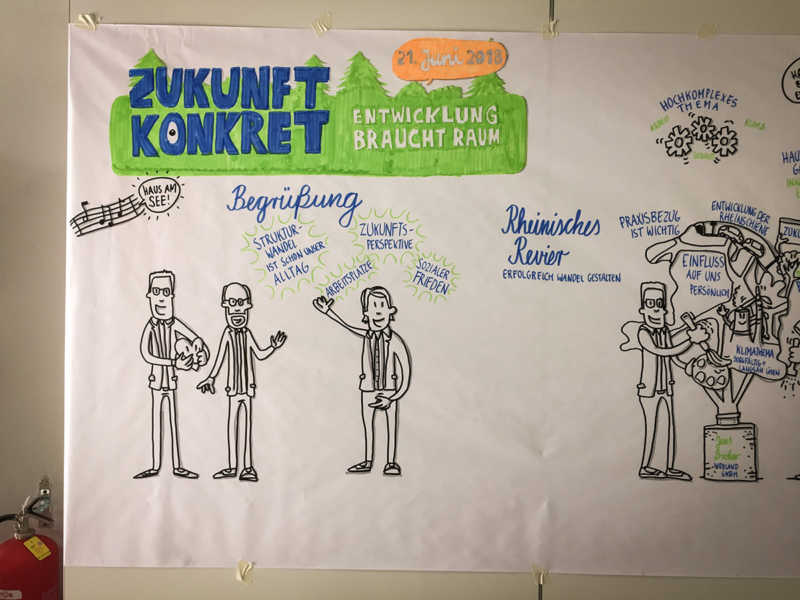 21. Juni 2018
ZUKUNFT
KONKRET
ENTWICKLUNG
BRAUCHT RAUM
HAUS AM
SEE!
Begrüßung
STRUKTUR-
WANDEL
IST SCHON UNSER
ALLTAG
ZUKUNFTS-
PERSPEKTIVE
ARBEITSPLÄTZE
SOZIALER
FRIEDEN
Rheinisches
Revier
ERFOLGREICH WANDEL GESTALTEN
HOCHKOMPLEXES
THEMA
KLIMA
PRAXISBEZUG
IST WICHTIG
ENTWICKLUNG DER
RHEINSCHIENE
EINFLUSS
AUF UNS
PERSÖNLICH
KLIMATHEMA
SORGFÄLTIG +
LANGSAM ÜBEN